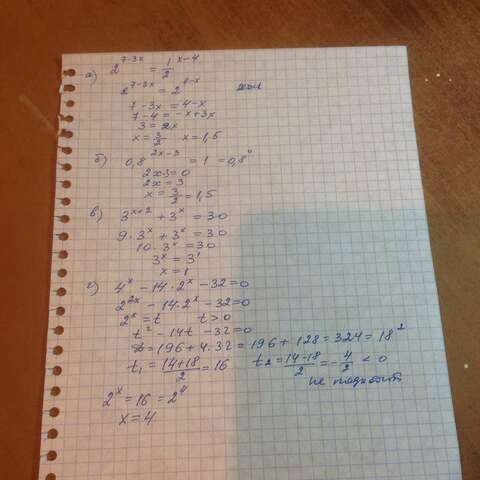 а) 2^(7-3x) = 1/2^(x-4)
2^(7-3x) = 2^(4-x)
7-3x = 4-x
7-4 = -x+3x
3 = 2x
x = 3/2 x = 1,5
б) 0,8^(2x-3) = 1 = 0,8^0
2x-3=0
2x = 3
x = 3/2 = 1,5
в) 3^(x+2) + 3^x = 30
9·3^x + 3^x = 30
10·3^x = 30
3^x = 3^1
x = 1
г) 4^x - 14·2^x - 32=0
2^(2x) - 14·2^x - 32=0
2^x = t t>0
t^2 - 14t - 32=0
=196+4·32=196+128=324=18^2
t1 = (14+18)/2 = 16 t2 = (14-18)/2 = -4/2 < 0
не подходит
2^x = 16 = 2^4
x = 4